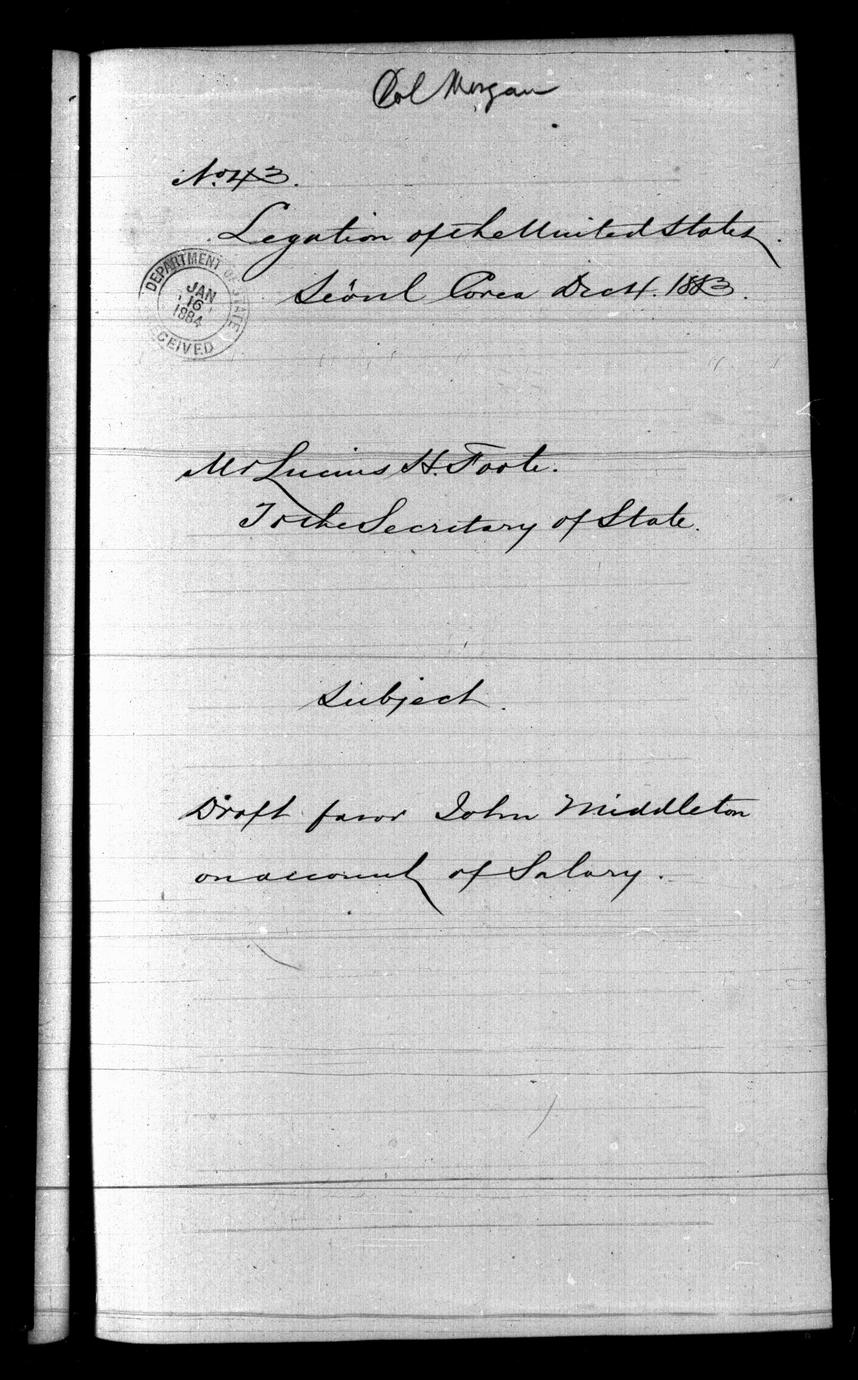 Col Morgan
No 43.
Legation of the United States.
Séoul Corea Dec 4. 1883.
DEPARTMENT OF STATE
JAN
16
1884
RECEIVED
Mr Lucius H. Foote.
To the Secretary of State.
Subject.
Draft favor John Middleton
on account of Salary.